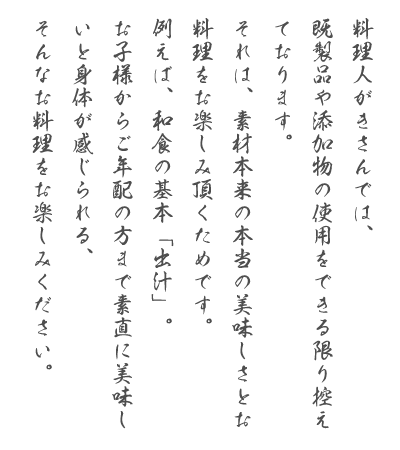 料理人がきさんでは、
既製品や添加物の使用をできる限り控え
ております。
それは、素材本来の本当の美味しさとお
料理をお楽しみ頂くためです。
例えば、和食の基本「出汁」。
お子様からご年配の方まで素直に美味し
いと身体が感じられる、
そんなお料理をお楽しみください。